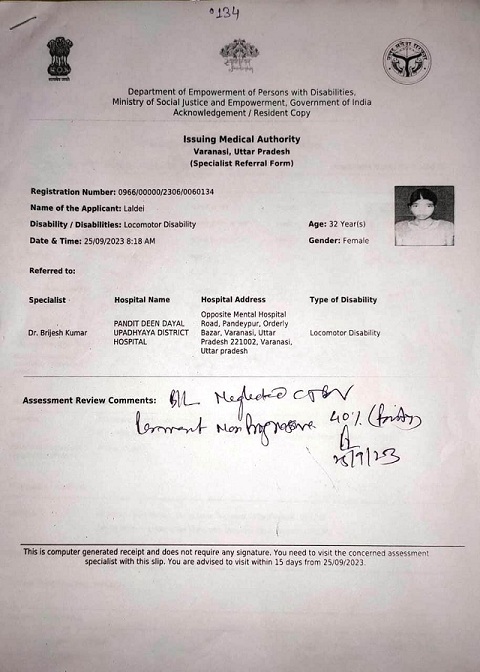 0134
Department of Empowerment of Persons with Disabilities,
Ministry of Social Justice and Empowerment, Government of India
Acknowledgement / Resident Copy
Issuing Medical Authority
Varanasi, Uttar Pradesh
(Specialist Referral Form)
Registration Number: 0966/00000/2306/0060134
Name of the Applicant: Laldei
Disability / Disabilities: Locomotor Disability
Age: 32 Year(s)
Date & Time: 25/09/2023 8:18 AM
Gender: Female
Referred to:
Specialist Hospital Name Hospital Address Type of Disability
Dr. Brijesh Kumar
PANDIT DEEN DAYAL
UPADHYAYA DISTRICT
HOSPITAL
Opposite Mental Hospital
Road, Pandeypur, Orderly
Bazar, Varanasi, Uttar
Pradesh 221002, Varanasi,
Uttar pradesh
Locomotor Disability
Assessment Review Comments: B/L Neglected CTEV
Permanent Non Progressive 40% (
This is computer generated receipt and does not require any signature. You need to visit the concerned assessment
specialist with this slip. You are advised to visit within 15 days from 25/09/2023.